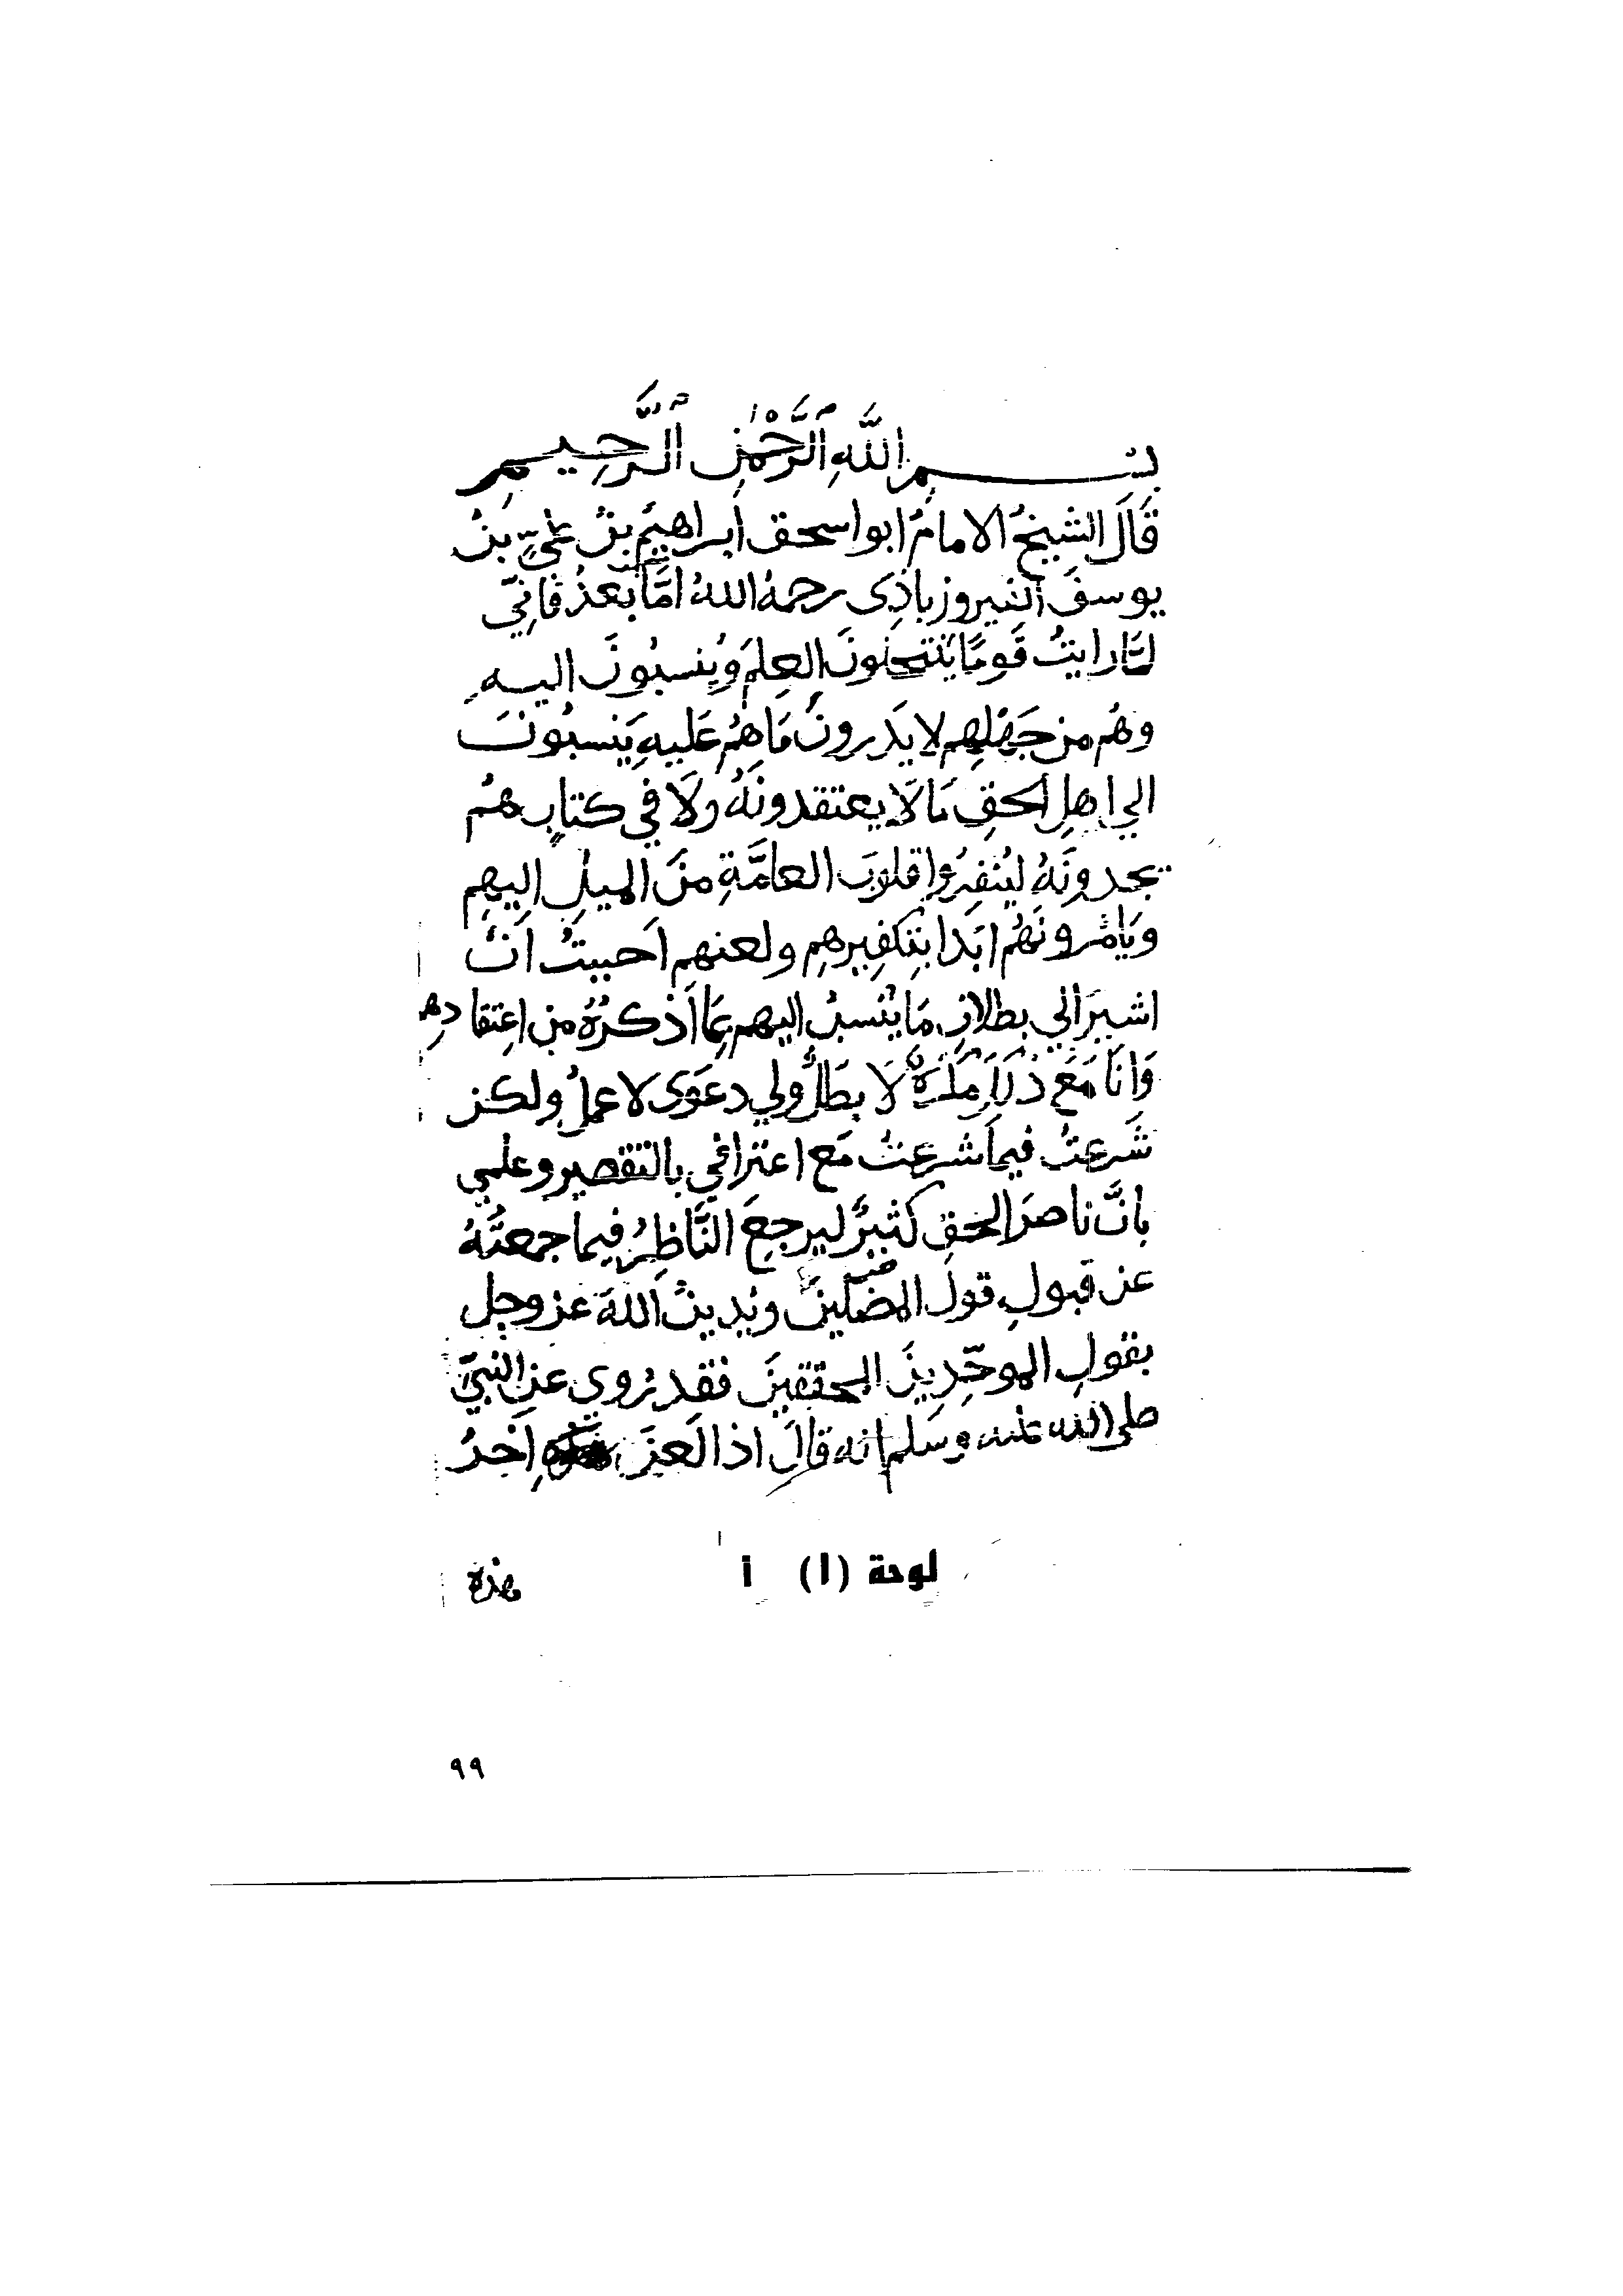 بِسْمِ اللَّهِ الرَّحْمٰنِ الرَّحِيمِ
قَالَ الشيخُ الامامُ ابواسحق ابراهيمُ بنُ عليِّ بنُ
يوسفَ الفيروزباذِى رحمهُ اللهُ امَّا بعدُ فانِّي
لمَّا رايتُ قَومًا ينتحلونَ العِلمَ وَيُنسبُونَ اليهِ
وهُم من جَهْلِهِم لا يَدرونَ مَا هُم عَليهِ يَنسبُونَ
الي اهلِ الحقِ مَا لَا يعتقدونَهُ ولَا في كتابٍ هُم
يجدونَهُ ليُنفِرُوا قلوبَ العامَّةِ منَ الميلِ اليهِم
ويَامُرونَهُم ابَدا بِتكفِيرهِم ولعنهِم احببتُ انْ
اشيرَ الي بطلانِ مَا يُنسبُ اليهِم بمَا اذكرُهُ من اعِتقادِهم
وَانَا مَعَ ذلكَ مُكرَهٌ لَا بطَلٌ ولي دعَوَى لا عملٌ ولكن
شَرعتُ فيمَا شرعتُ مَع اعترافي بالتقصيرِ وعلمي
بانَّ ناصرَ الحقِ كثيرٌ ليرجعَ النَّاظِرُ فيما جمعتُهُ
عن قبولِ قولِ المضلينَ ويُدينُ اللهَ عز وجل
بقولِ الموحِّدِينَ المحققينَ فقد رُوي عنِ النبيِّ
صلي الله عليه وسَلم انه قالَ اذا لَعنَ اخرُ
هذه
لوحة (١) أ
٩٩